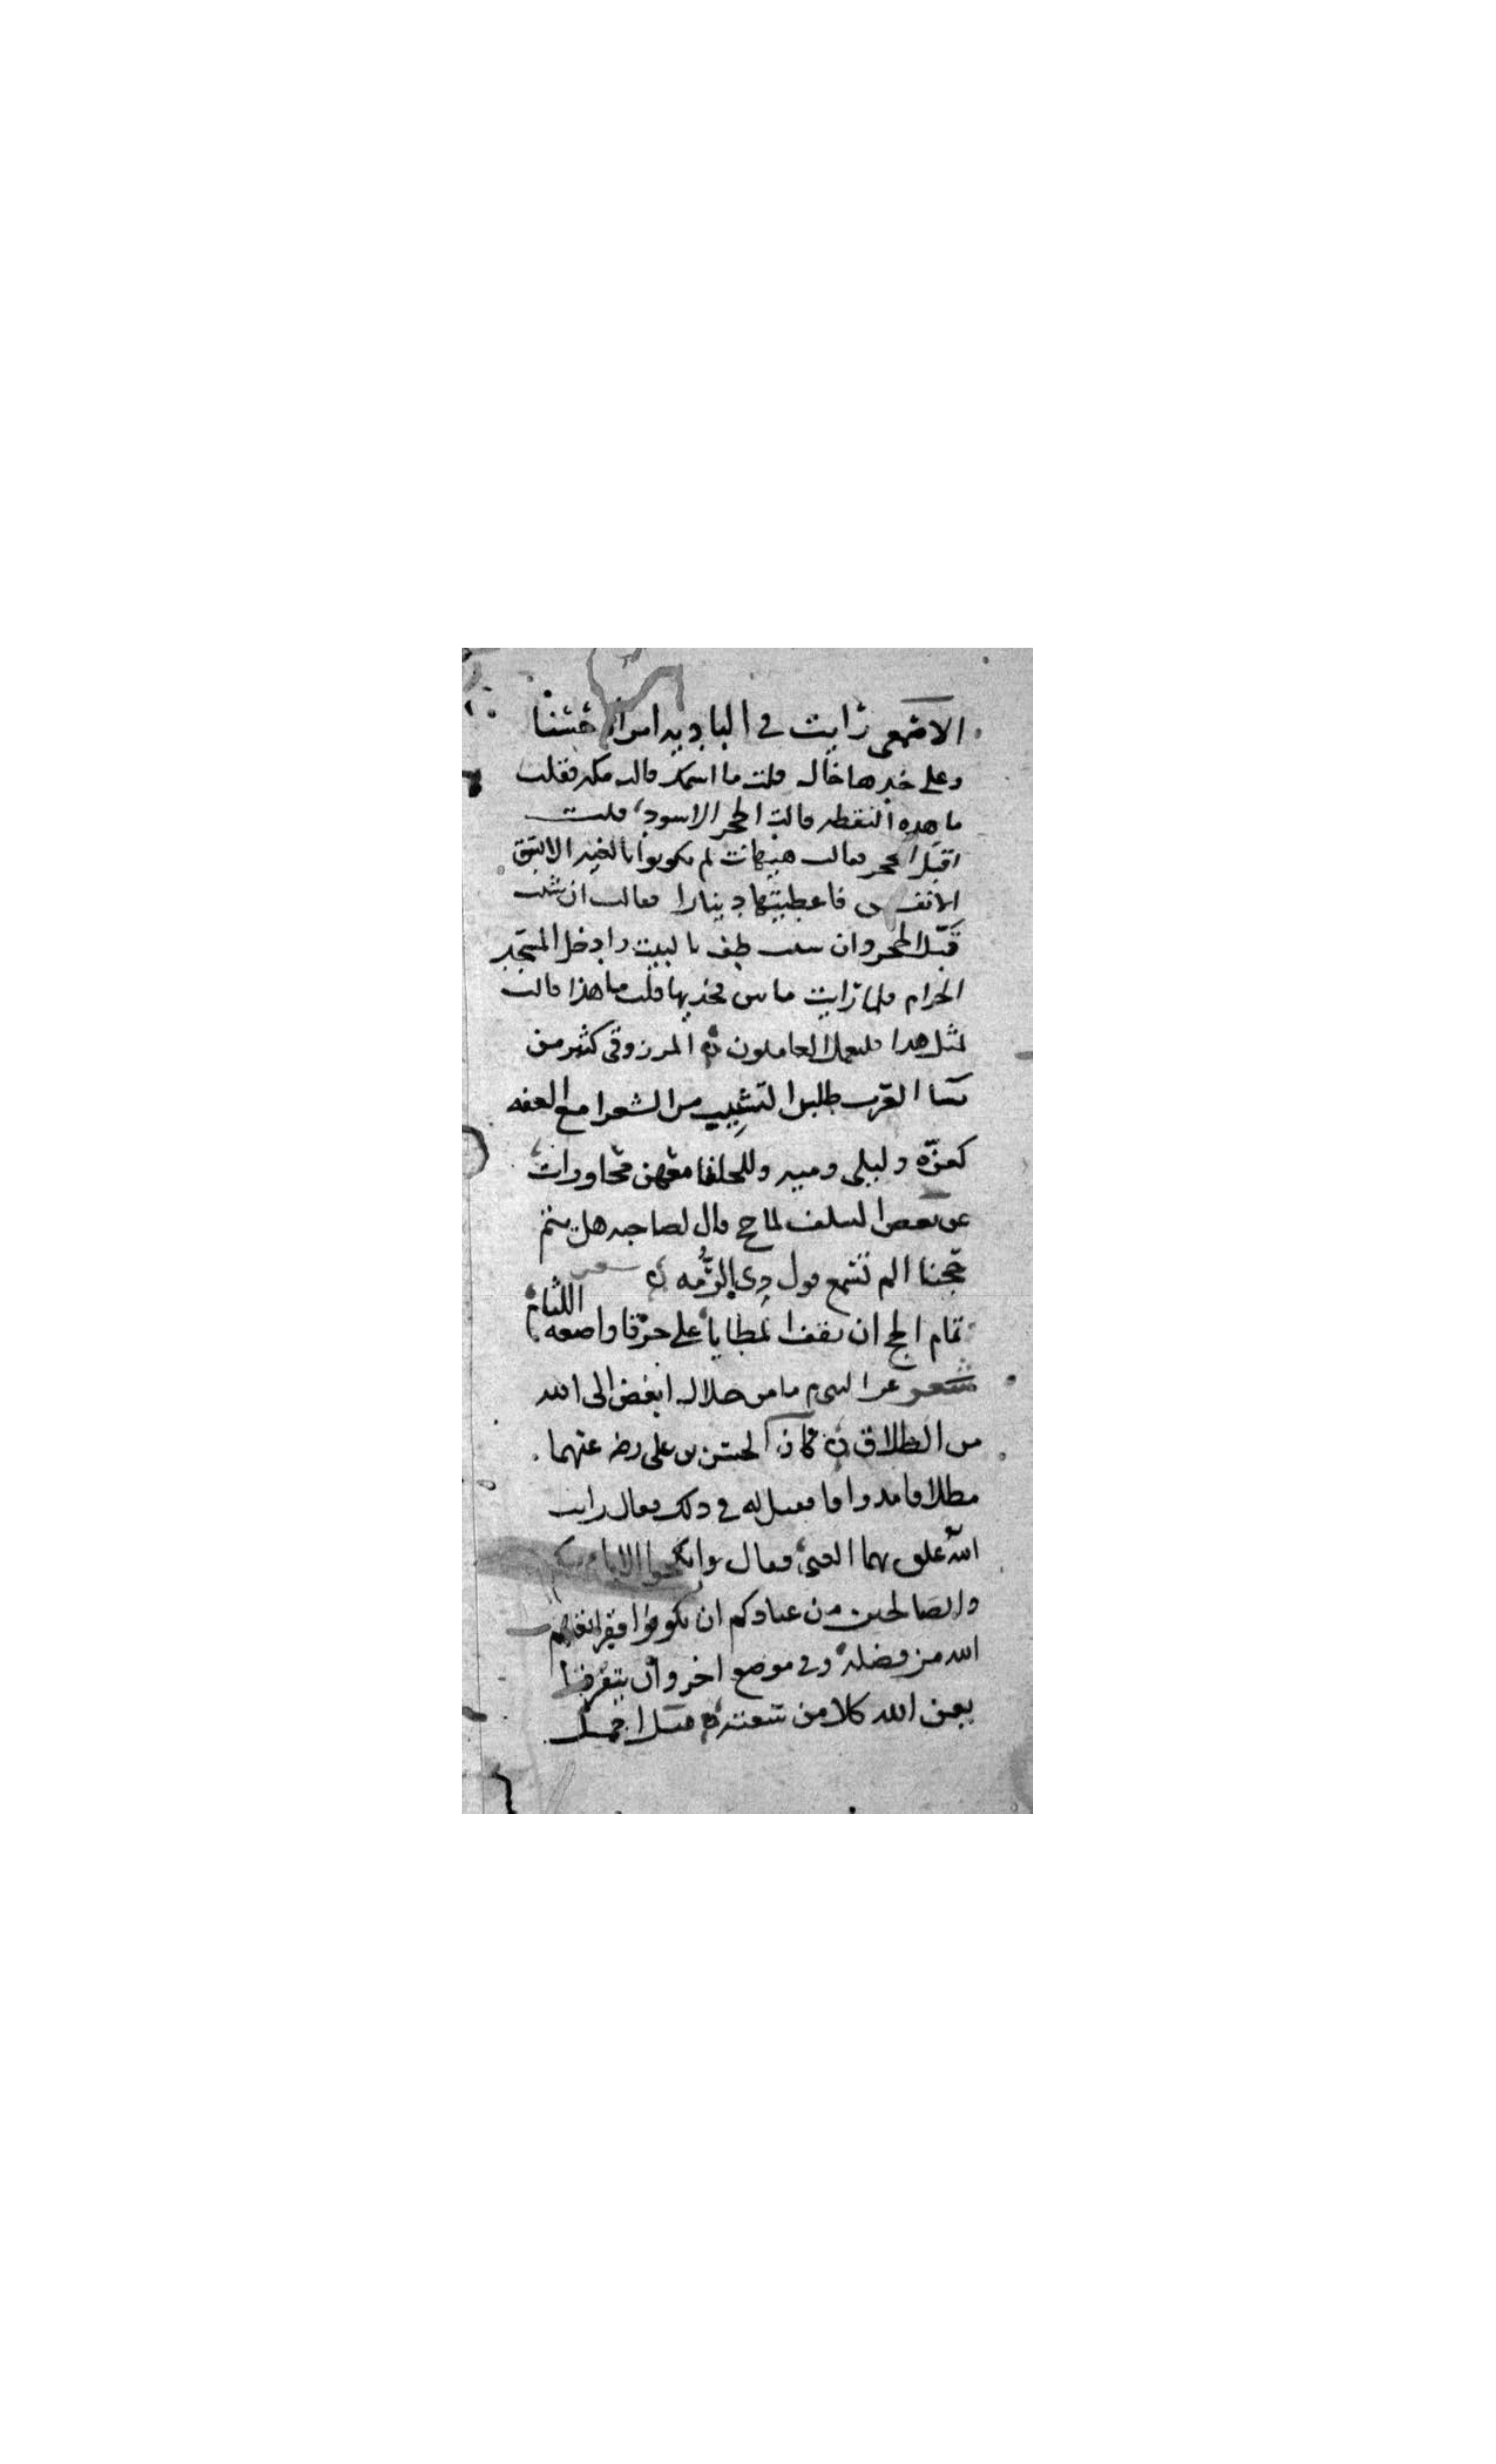 الاصمعى رايت فى الباديه امراة حسنا
وعلى خدها خال فلت ما اسمك قالت مكه فقلت
ما هذه النقطه قالت الحجر الاسود قلت
اقبل الحجر فقالت هيهات لم تكونوا بالغيه الا بشق
الانفس فاعطيتها دينارا فقالت ان شئت
قبل الحجر وان شئت طف بالبيت وادخل المسجد
الحرام فلما رايت ما بين فخذيها قلت ما هذا قالت
لمثل هذا فليعمل العاملون المرزوقى كثير من
نسا العرب طلبوا التشبيب من الشعرا مع العفه
كعزه وليلى وميه وللخلفا معهن محاورات
عن بعض السلف لما حج قال لصاحبه هل نتم
حجنا الم تسمع قول ذى الرمه شعر
تمام الحج ان تقف المطايا على خرقا واضعه اللثام
شعر عن النبى م ما من حلال ابغض الى الله
من الطلاق كان الحسن بن على رضى عنهما
مطلاقا مذواقا فقيل له فى ذلك فقال رايت
الله علق بهما الغنى فقال وانكحوا الايامى منكم
والصالحين من عبادكم ان يكونوا فقرا يغنهم
الله من فضله وفى موضع اخر وان يتفرقا
يغن الله كلا من سعته قيل اجمل